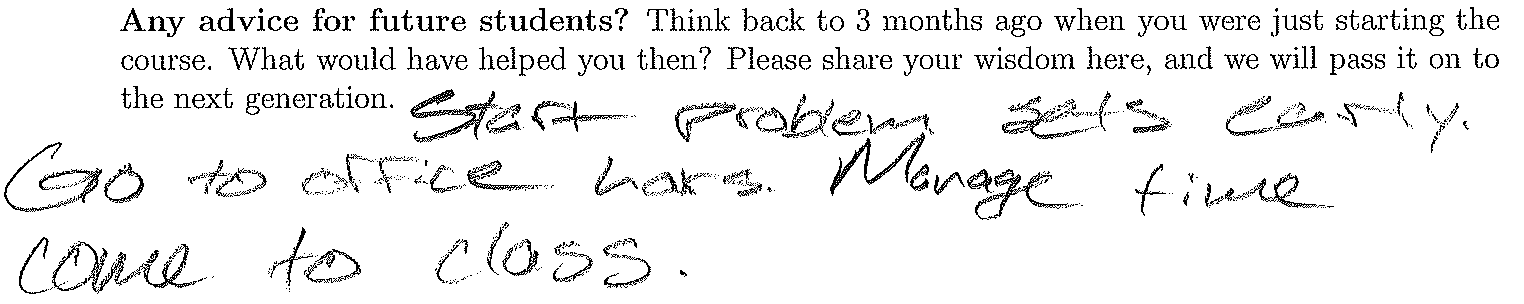 Any advice for future students? Think back to 3 months ago when you were just starting the
course. What would have helped you then? Please share your wisdom here, and we will pass it on to
the next generation. Start problem sets early.
Go to office hors. Manage time
come to class.